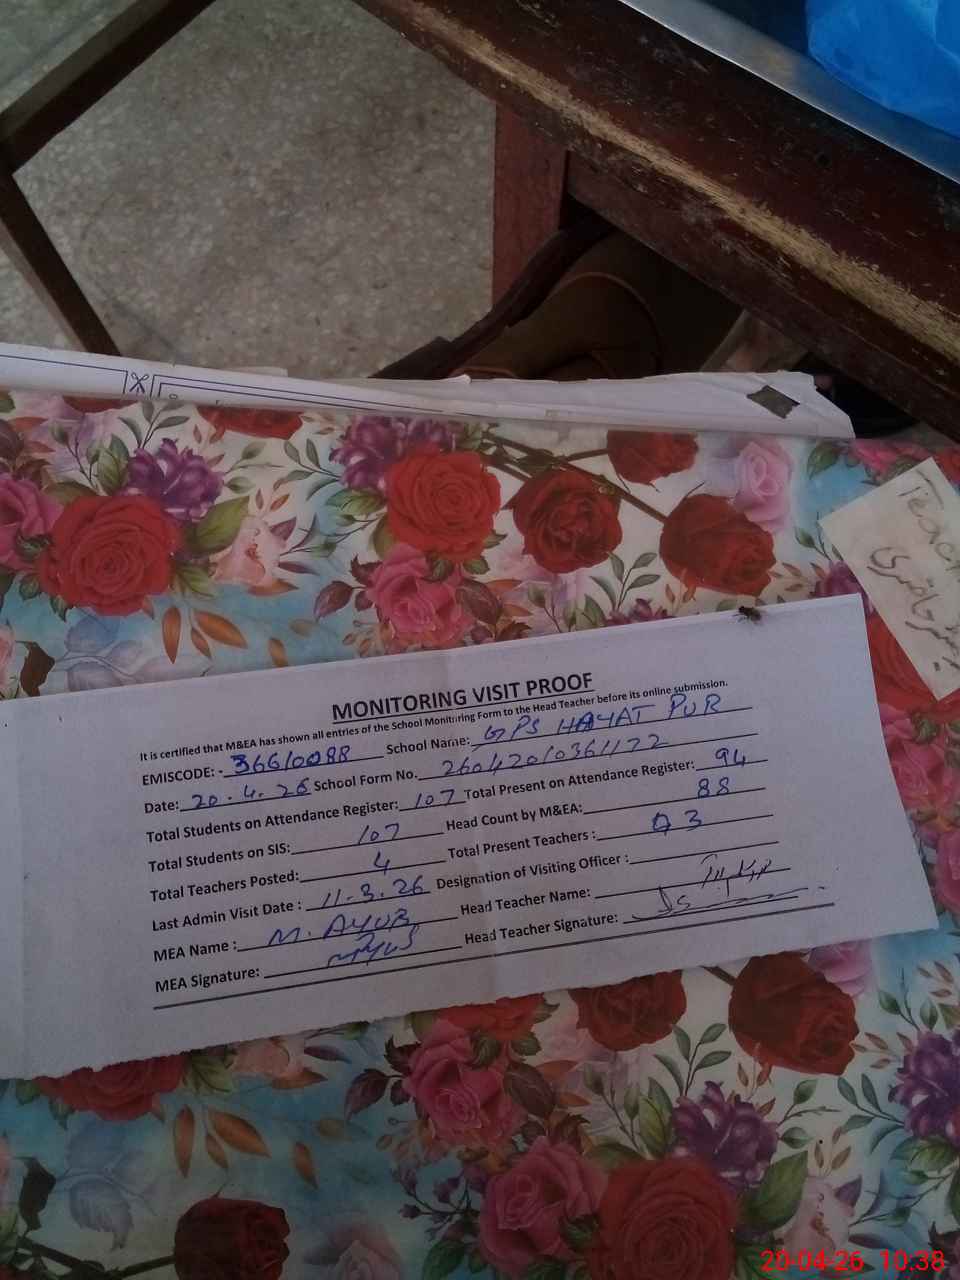 Teach
حاضری
MONITORING VISIT PROOF
It is certified that M&EA has shown all entries of the School Monitoring Form to the Head Teacher before its online submission.
EMISCODE: - 36610088 School Name: GPS HAYAT PUR
Date: 20.4.26 School Form No. 26042010361172
Total Students on Attendance Register: 107 Total Present on Attendance Register: 94
Total Students on SIS: 107 Head Count by M&EA: 88
Total Teachers Posted: 4 Total Present Teachers : 03
Last Admin Visit Date : 11-3.26 Designation of Visiting Officer :
MEA Name : M. AYUB Head Teacher Name:
MEA Signature: Head Teacher Signature:
20-04-26 10:38